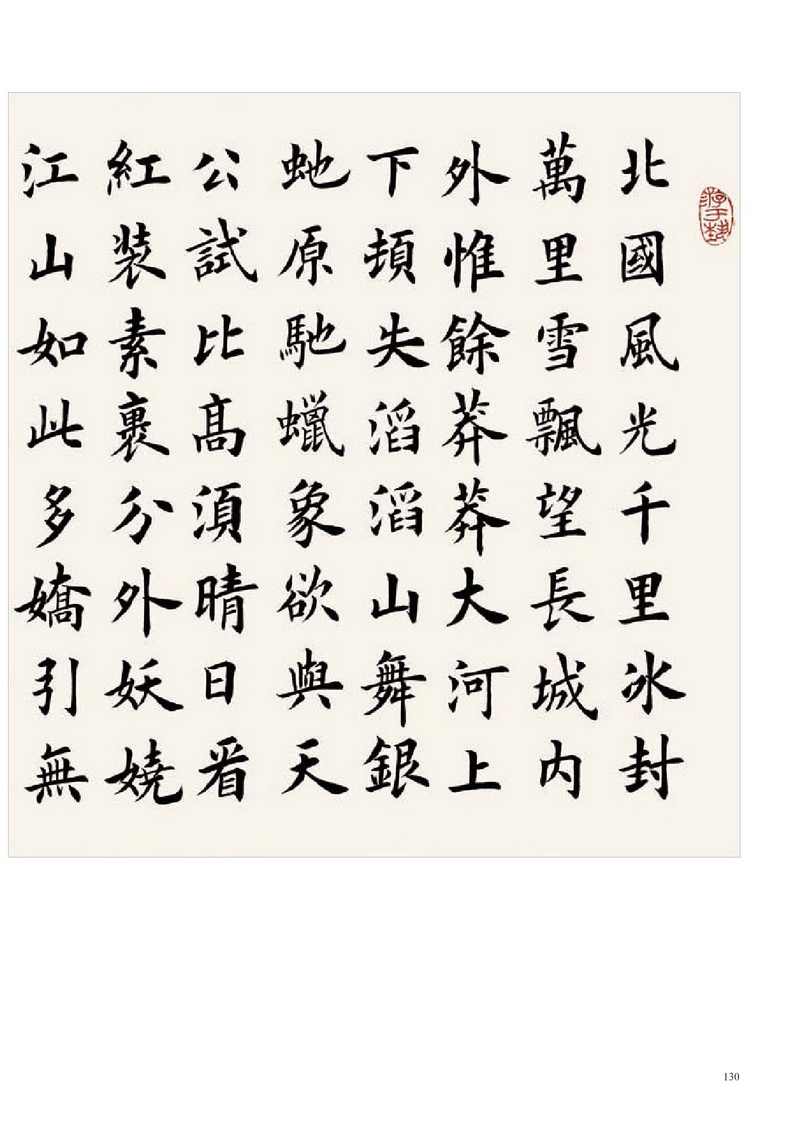 游于埶
北國風光千里冰封
萬里雪飄望長城内
外惟餘莽莽大河上
下頓失滔滔山舞銀
虵原馳蠟象欲與天
公試比髙湏晴日看
紅裝素裹分外妖嬈
江山如此多嬌引無
130